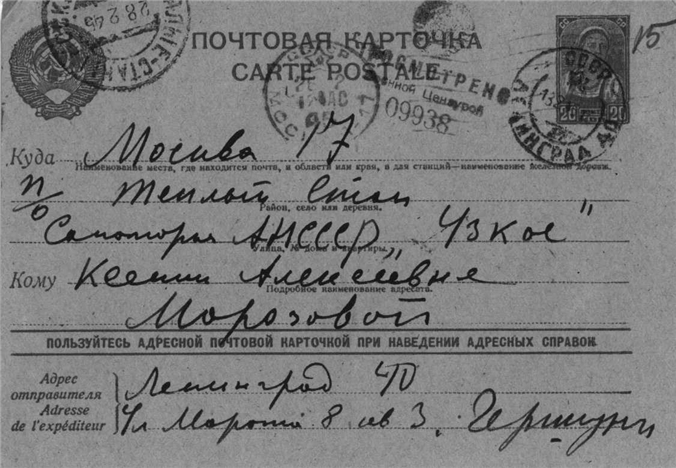 28 2 45
ПОЧТОВАЯ КАРТОЧКА
CARTE POSTALE
15
СССР
ПРОСМОТРЕНО
Военной Цензурой
09938
20 20
ЛЕНИНГРАД
Куда Москва 17
Наименование места, где находится почта, и области или края, а для станций—наименование железной дороги.
п/о Теплый Стан
Район, село или деревня.
Санаторья АНСССР „Узкое"
Улица, № дома и квартиры.
Кому Ксении Алексеевне
Подробное наименование адресата.
Морозовой
ПОЛЬЗУЙТЕСЬ АДРЕСНОЙ ПОЧТОВОЙ КАРТОЧКОЙ ПРИ НАВЕДЕНИИ АДРЕСНЫХ СПРАВОК
Адрес отправителя
Adresse de l'expéditeur
Ленинград 40
Ул Марата 8 кв 3. Гершуни